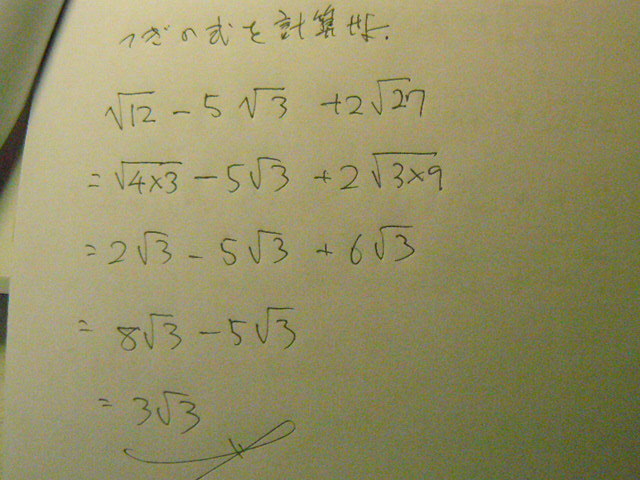 つぎの式を計算せよ.
√12 - 5√3 + 2√27
= √4×3 - 5√3 + 2√3×9
= 2√3 - 5√3 + 6√3
= 8√3 - 5√3
= 3√3